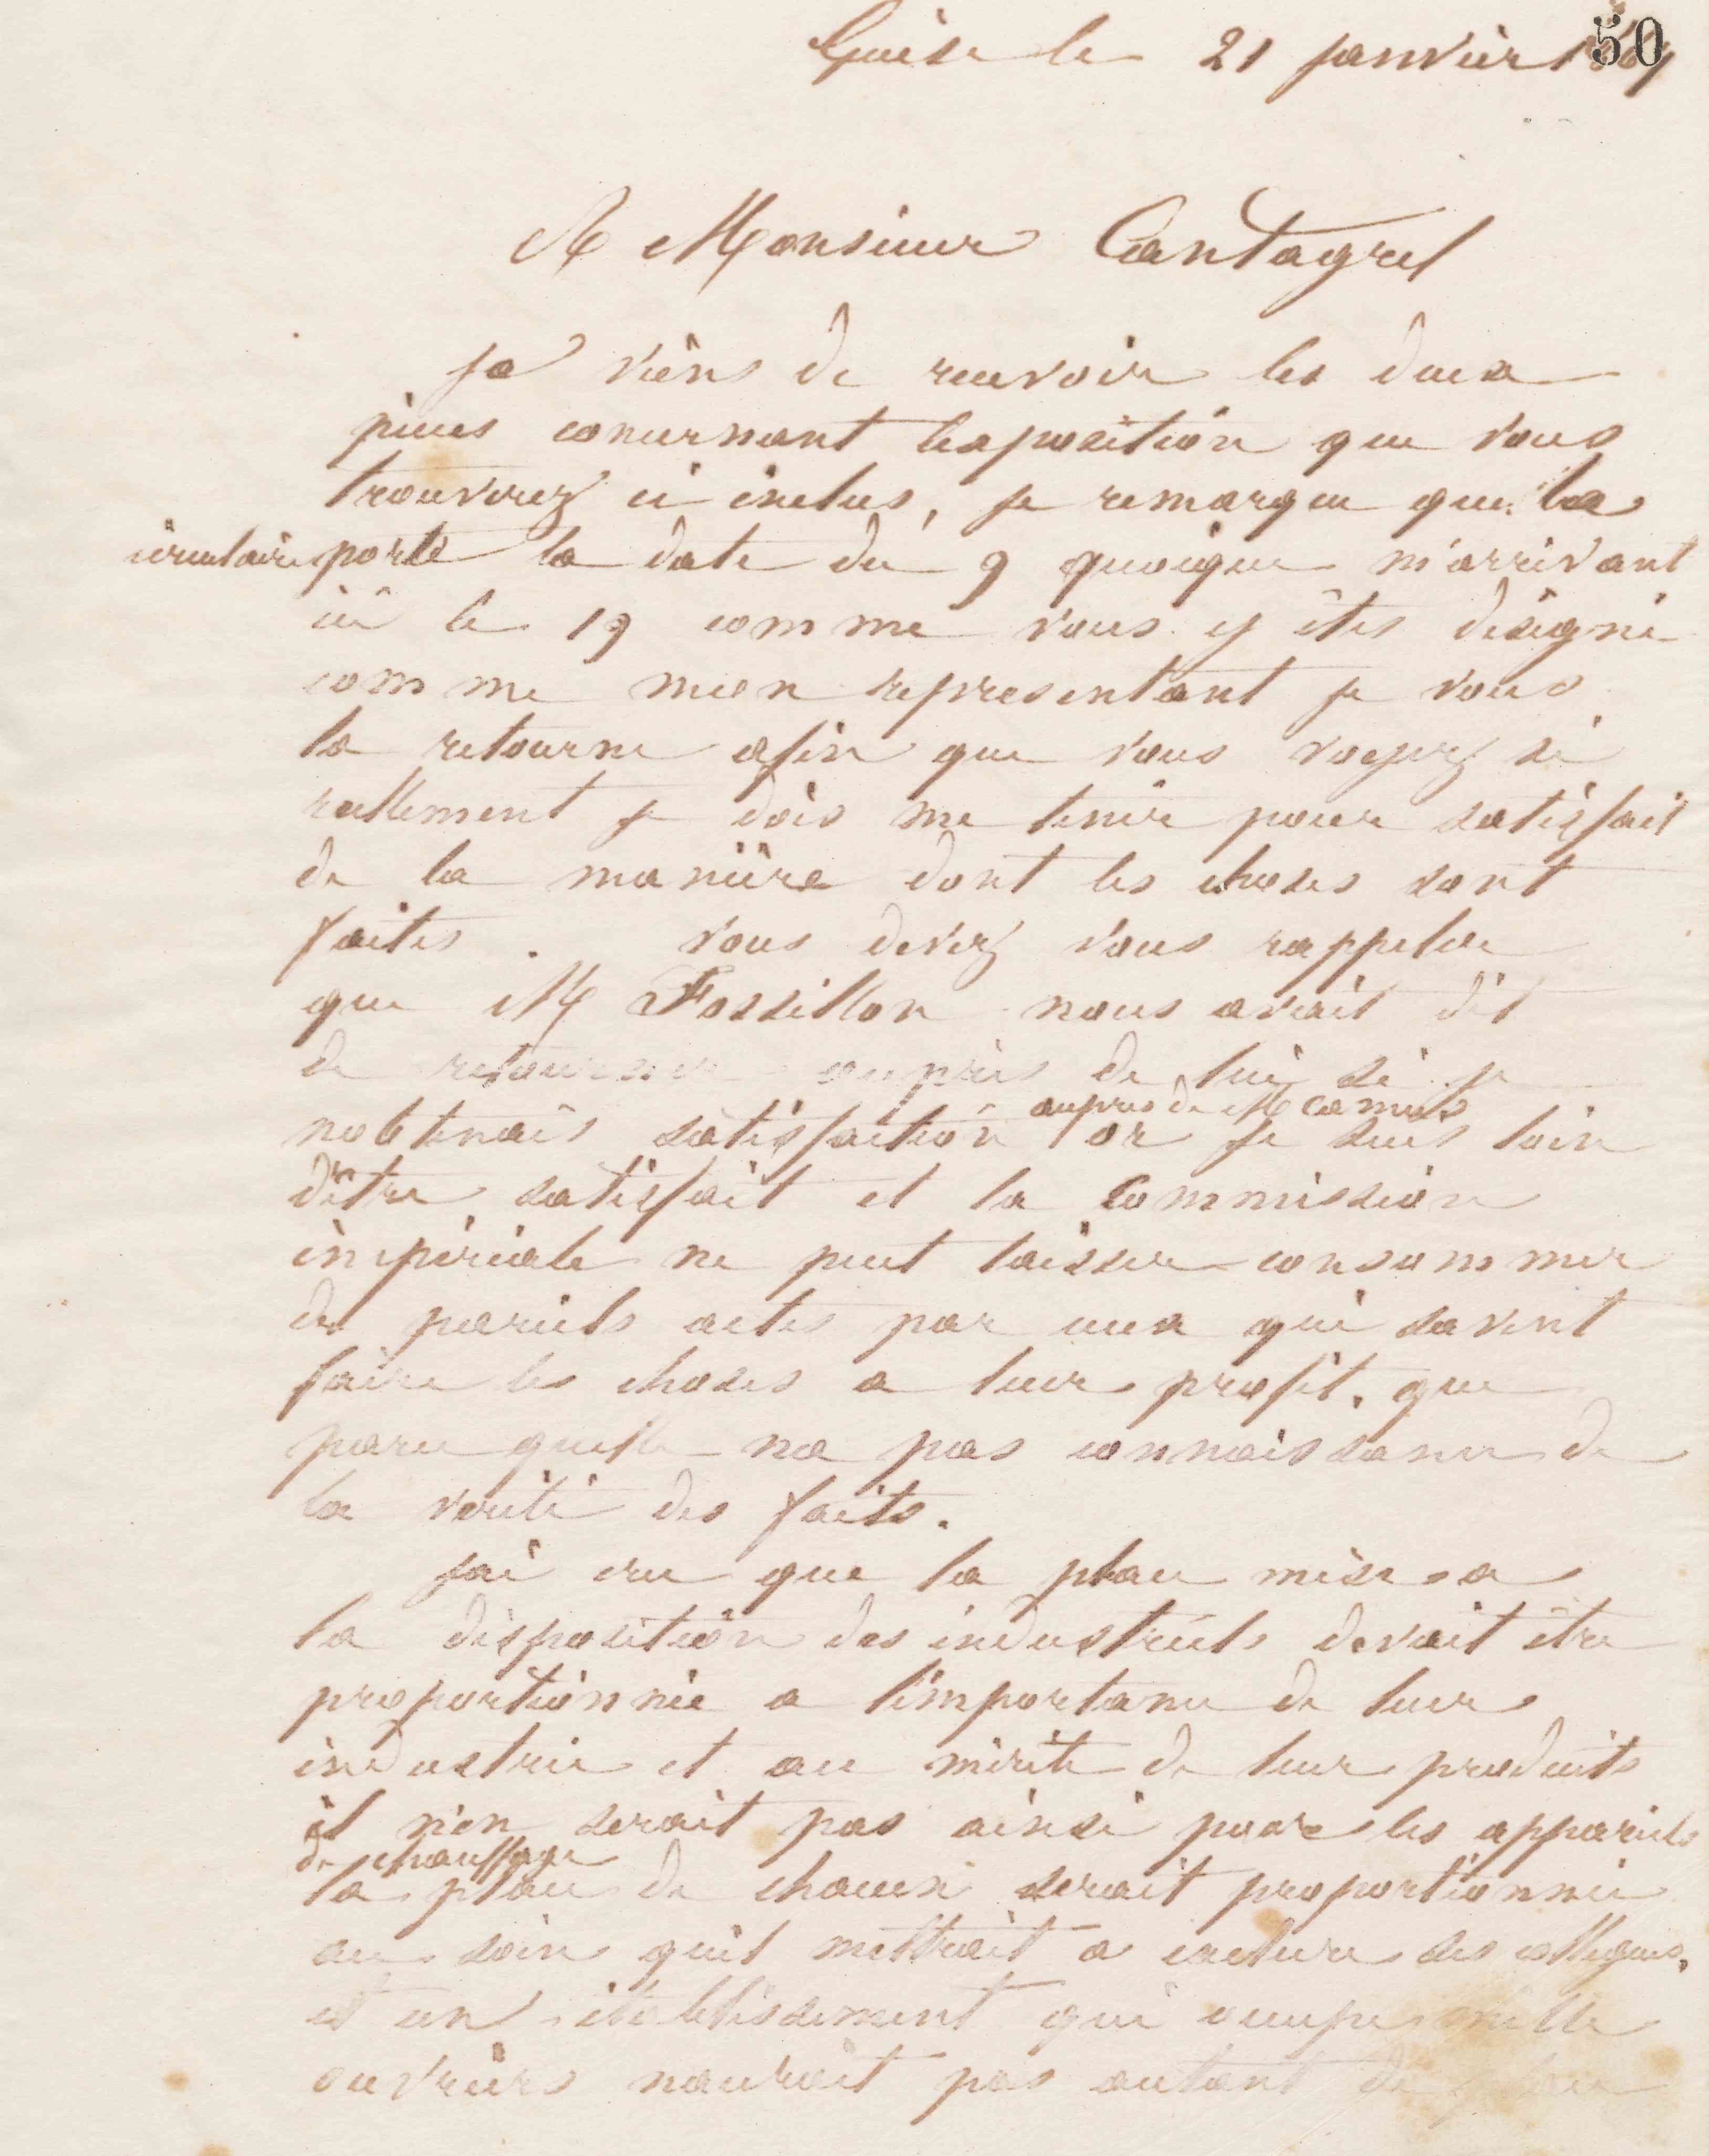 50
Guise le 21 janvier 18
A Monsieur Cantagrel
Je viens de recevoir les deux
pièces concernant lexposition que vous
trouverez ci inclus, je remarque que la
circulaire porte la date du 9 quoique m'arrivant
ici le 19 comme vous y êtes désigné
comme mon representant je vous
la retourne afin que vous voyez si
reellement je dois me tenir pour satisfait
de la manière dont les choses sont
faites. vous devez vous rappeler
que M Fossillon nous avait dit
de retourner auprès de lui si je
nobtenais satisfaction auprès de M Camus or je suis loin
dêtre satisfait et la Commission
impériale ne peut laisser consommer
de pareils actes par ceux qui savent
faire les choses a leur profit, que
parce quelle na pas connaissance de
la vérité des faits.
Jai cru que la place mise a
la disposition des industriels devait être
proportionnée a limportance de leur
industrie et au mérite de leur produits
il n'en serait pas ainsi pour les appareils
de chauffage
la place de chacun serait proportionnée
au soin quil mettrait a exclure ses collegues,
et un établissement qui occupe mille
ouvriers naurait pas autant de place